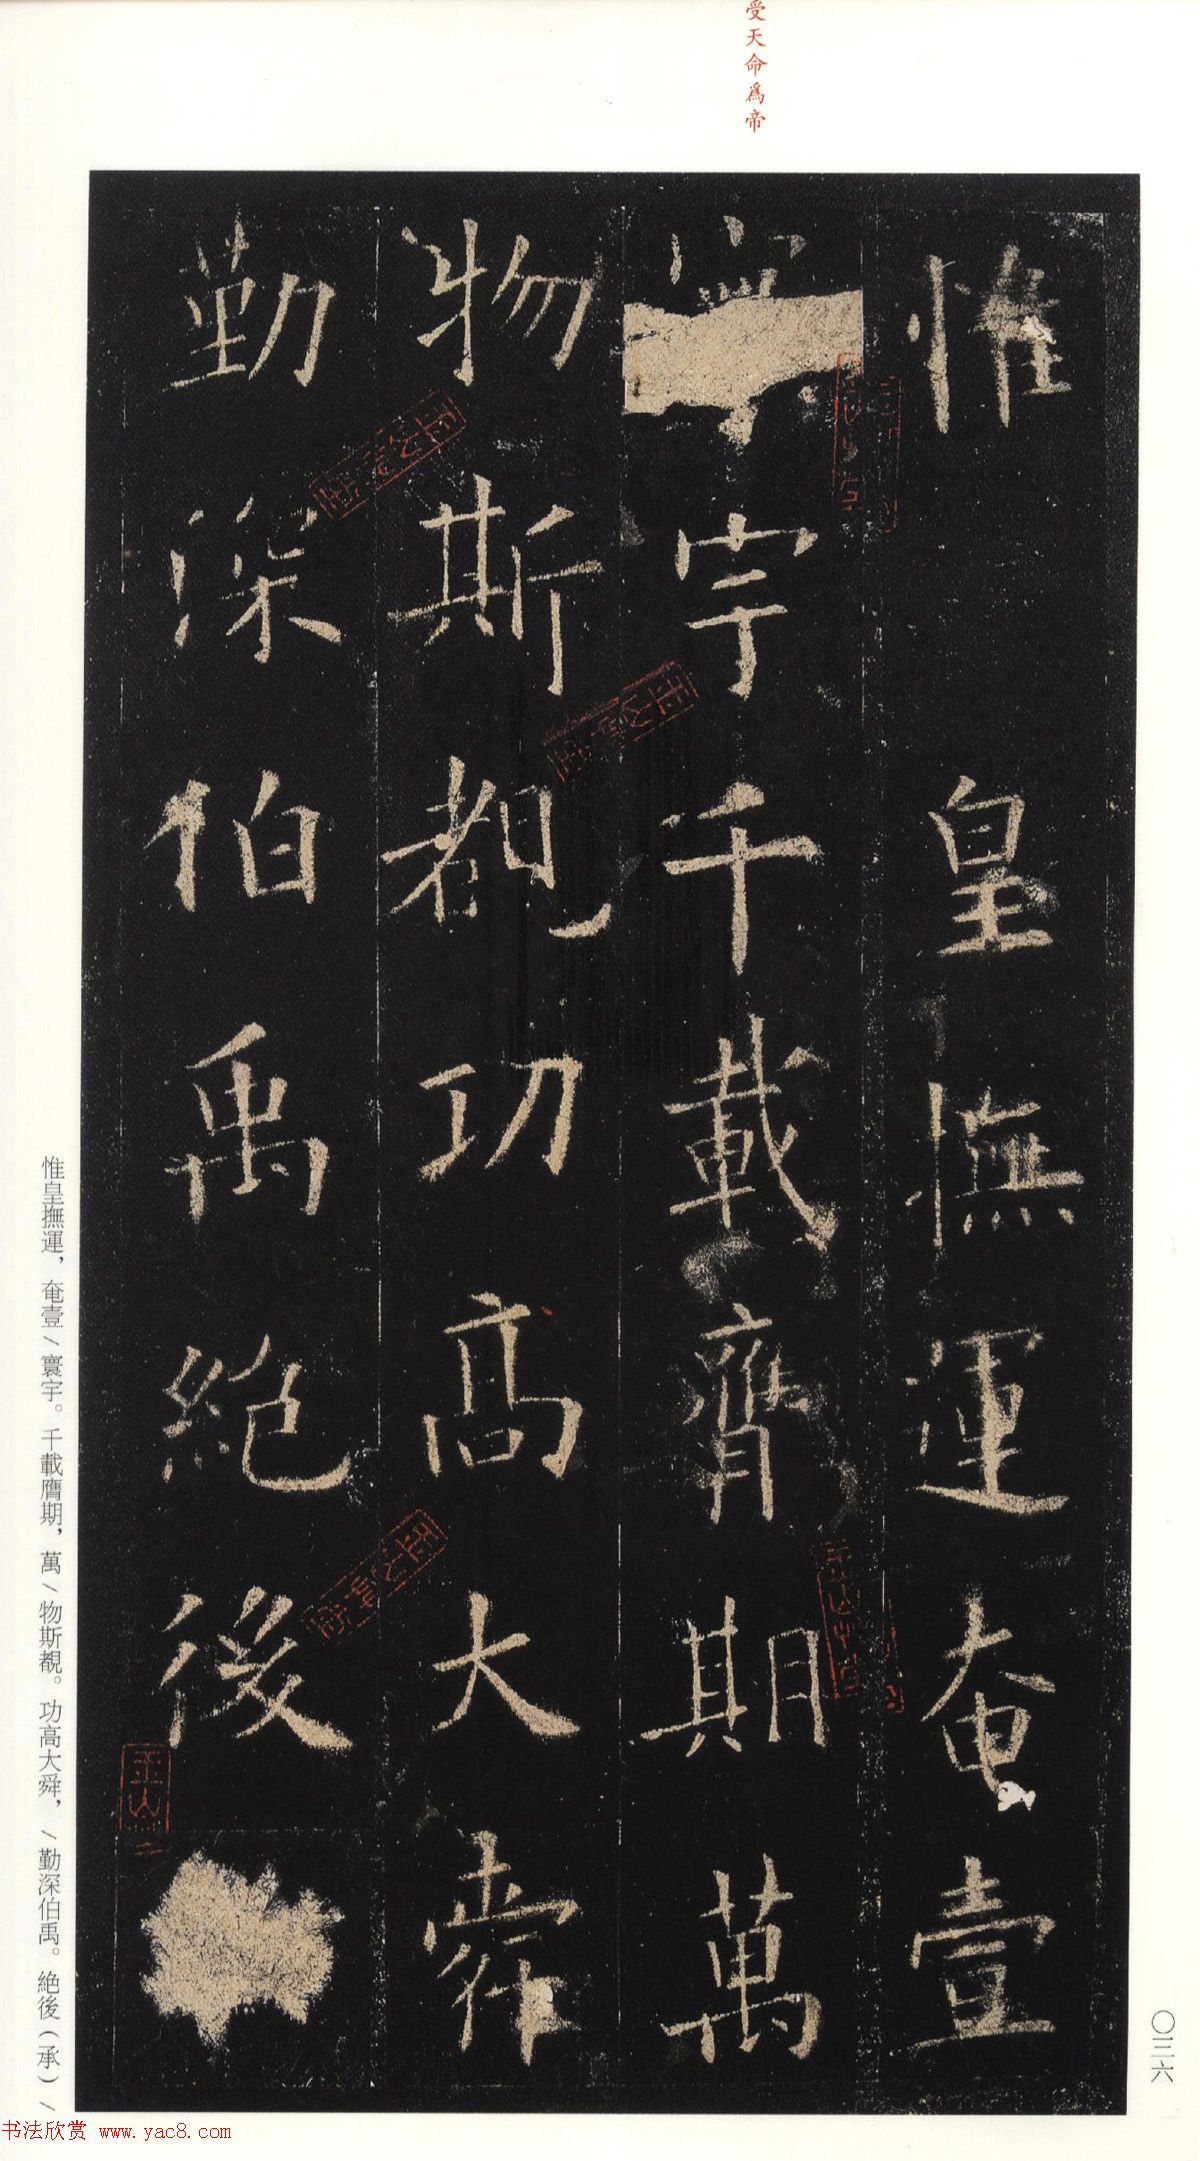 受天命爲帝
惟皇撫運奄壹
宇千載膺期萬
物斯覩功高大舜
勤深伯禹絶後
惟皇撫運，奄壹／寰宇。千載膺期，萬／物斯覩。功高大舜，／勤深伯禹。絶後（承）／
〇三六
书法欣赏 www.yac8.com